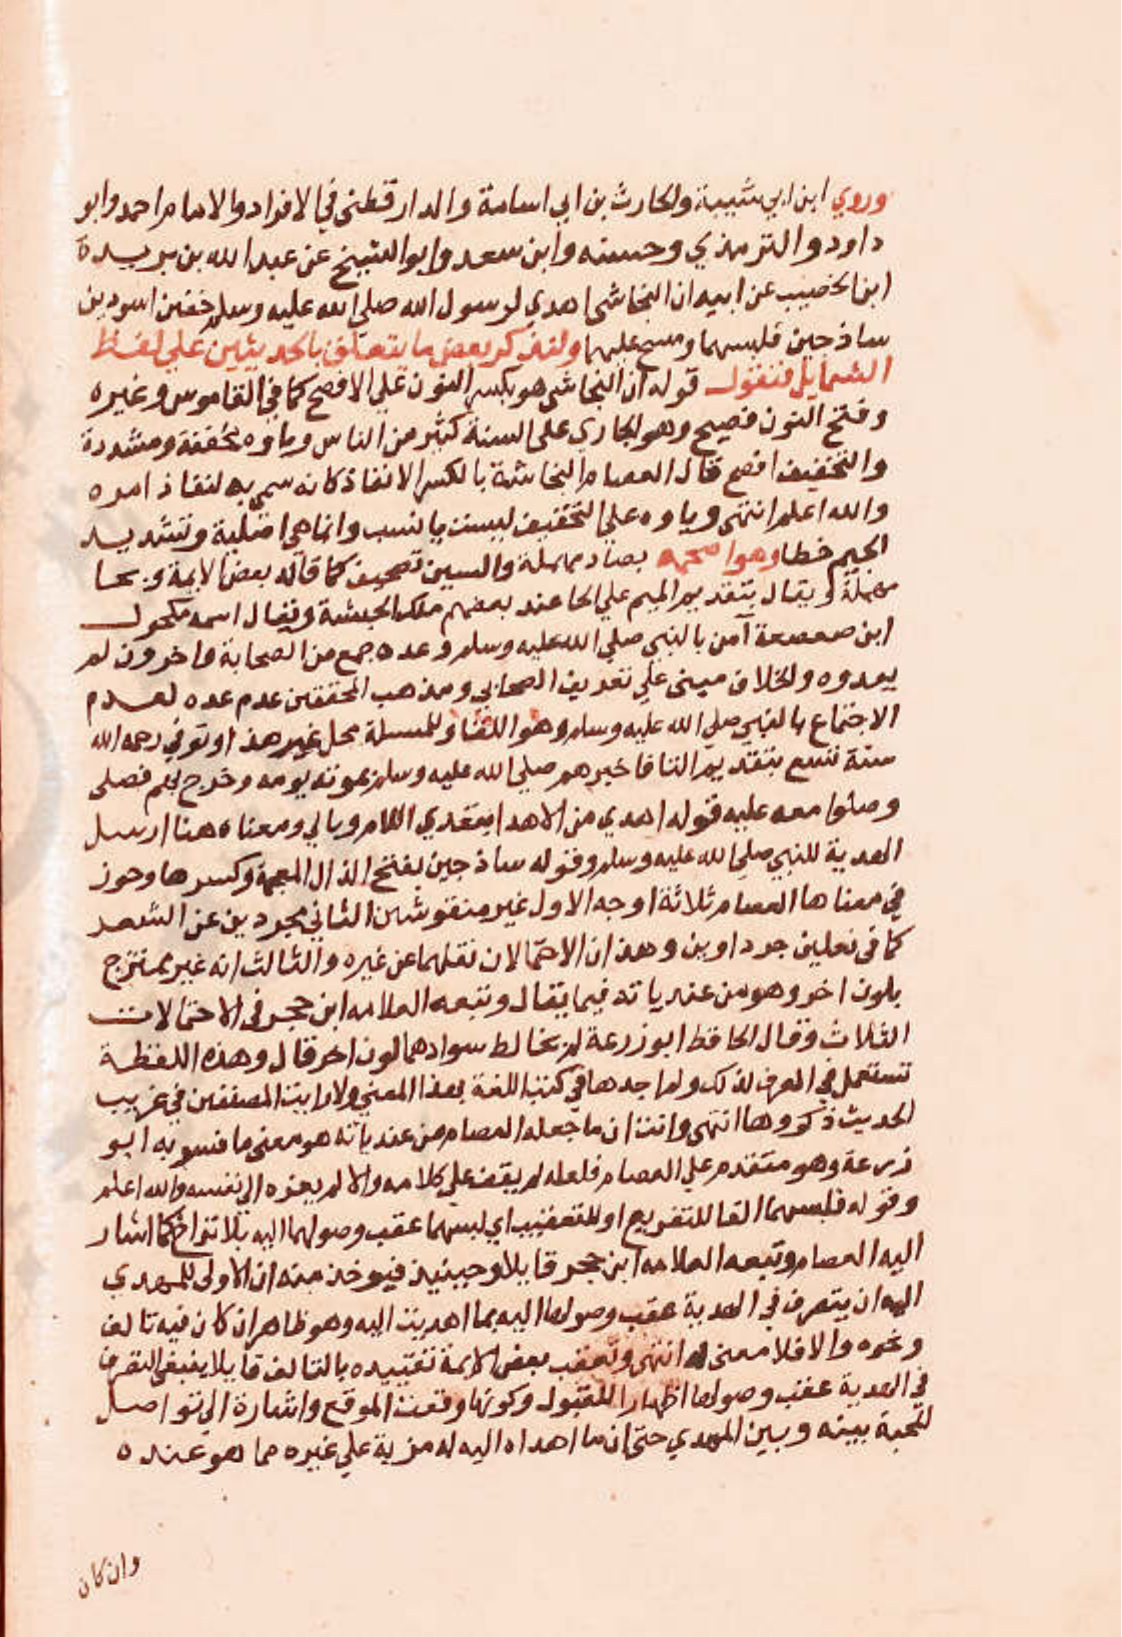 وروي ابن ابي شيبة والحارث بن ابي اسامة والدارقطني في الافراد والامام احمد وابو
داود والترمذي وحسنه وابن سعد وابو الشيخ عن عبد الله بن بريدة
ابن الخصيب عن ابيه ان النجاشي اهدي لرسول الله صلي الله عليه وسلم خفين اسودين
ساذجين فلبسهما ومسح عليهما ولنذكر بعض ما يتعلق بالحديثين علي لفظ
الشمايل فنقول قوله ان النجاشي هو بكسر النون علي الافصح كما في القاموس وغيره
وفتح النون فصيح وهو الجاري علي السنة كثير من الناس وياوه مخففة ومشددة
والتخفيف افصح قال العصام النجاشة بالكسر الانفاذ كانه سمي به لنفاذ امره
والله اعلم انتهي وياوه علي التخفيف ليست يا نسب وانما هي اصلية وتشديد
الجيم خطا وهو اصحمه بصاد مهملة والسين تصحيف كما قاله بعض الايمة وبحا
مهملة ويقال بتقديم الميم علي الحا عند بعضهم ملك الحبشة ويقال اسمه مكحول
ابن صعصعة آمن بالنبي صلي الله عليه وسلم وعده جمع من الصحابة واخرون لم
يعدوه والخلاف مبني علي تعريف الصحابي ومذهب المحققين عدم عده لعدم
الاجتماع بالنبي صلي الله عليه وسلم وهو اللقا وللمسلة محل غير هذا وتوفي رحمه الله
سنة تسع بتقديم التا فاخبرهم صلي الله عليه وسلم بموته يومه وخرج بهم فصلي
وصلوا معه عليه قوله اهدي من الاهدا يتعدي باللام وبالي ومعناه هنا ارسل
الهدية للنبي صلي الله عليه وسلم وقوله ساذجين بفتح الذال المعجمة وكسرها وجوز
في معناها العصام ثلاثة اوجه الاول غير منقوشين الثاني مجردين عن الشعر
كما في نعلين جرداوين وهذان الاحتمالان نقلهما عن غيره والثالث انه غير ممتزج
بلون اخر وهو من عندياته فيما يقال وتبعه العلامه ابن حجر في الاحتمالات
الثلاث وقال الحافظ ابو زرعة لم يخالط سوادهما لون اخر قال وهذه اللفظة
تستعمل في العرف لذلك ولم اجدها في كتب اللغة بهذا المعني ولا رايت المصنفين في غريب
الحديث ذكروها انتهي وانت ان ما جعله العصام من عندياته هو معني ما فسر به ابو
زرعة وهو متقدم علي العصام فلعله لم يقف علي كلامه والا لم يعزه الي نفسه والله اعلم
وقوله فلبسهما الفا للتفريع او للتعقيب اي لبسهما عقب وصولهما اليه بلا تراخ كما اشار
اليه العصام وتبعه العلامه ابن حجر قايلا وحينيذ فيوخذ منه ان الاولي للمهدي
اليه ان يتصرف في الهدية عقب وصولها اليه بما اهديت اليه وهو ظاهر ان كان فيه تالف
ونحوه والا فلا معني له انتهي وتعقب بعض الايمة تقييده بالتالف قايلا ينبغي التصرف
في الهدية عقب وصولها اظهارا للقبول وكونها وقعت الموقع واشارة الي تواصل
المحبة بينه وبين المهدي حتي ان ما اهداه اليه له مزية علي غيره مما هو عنده
وان كان